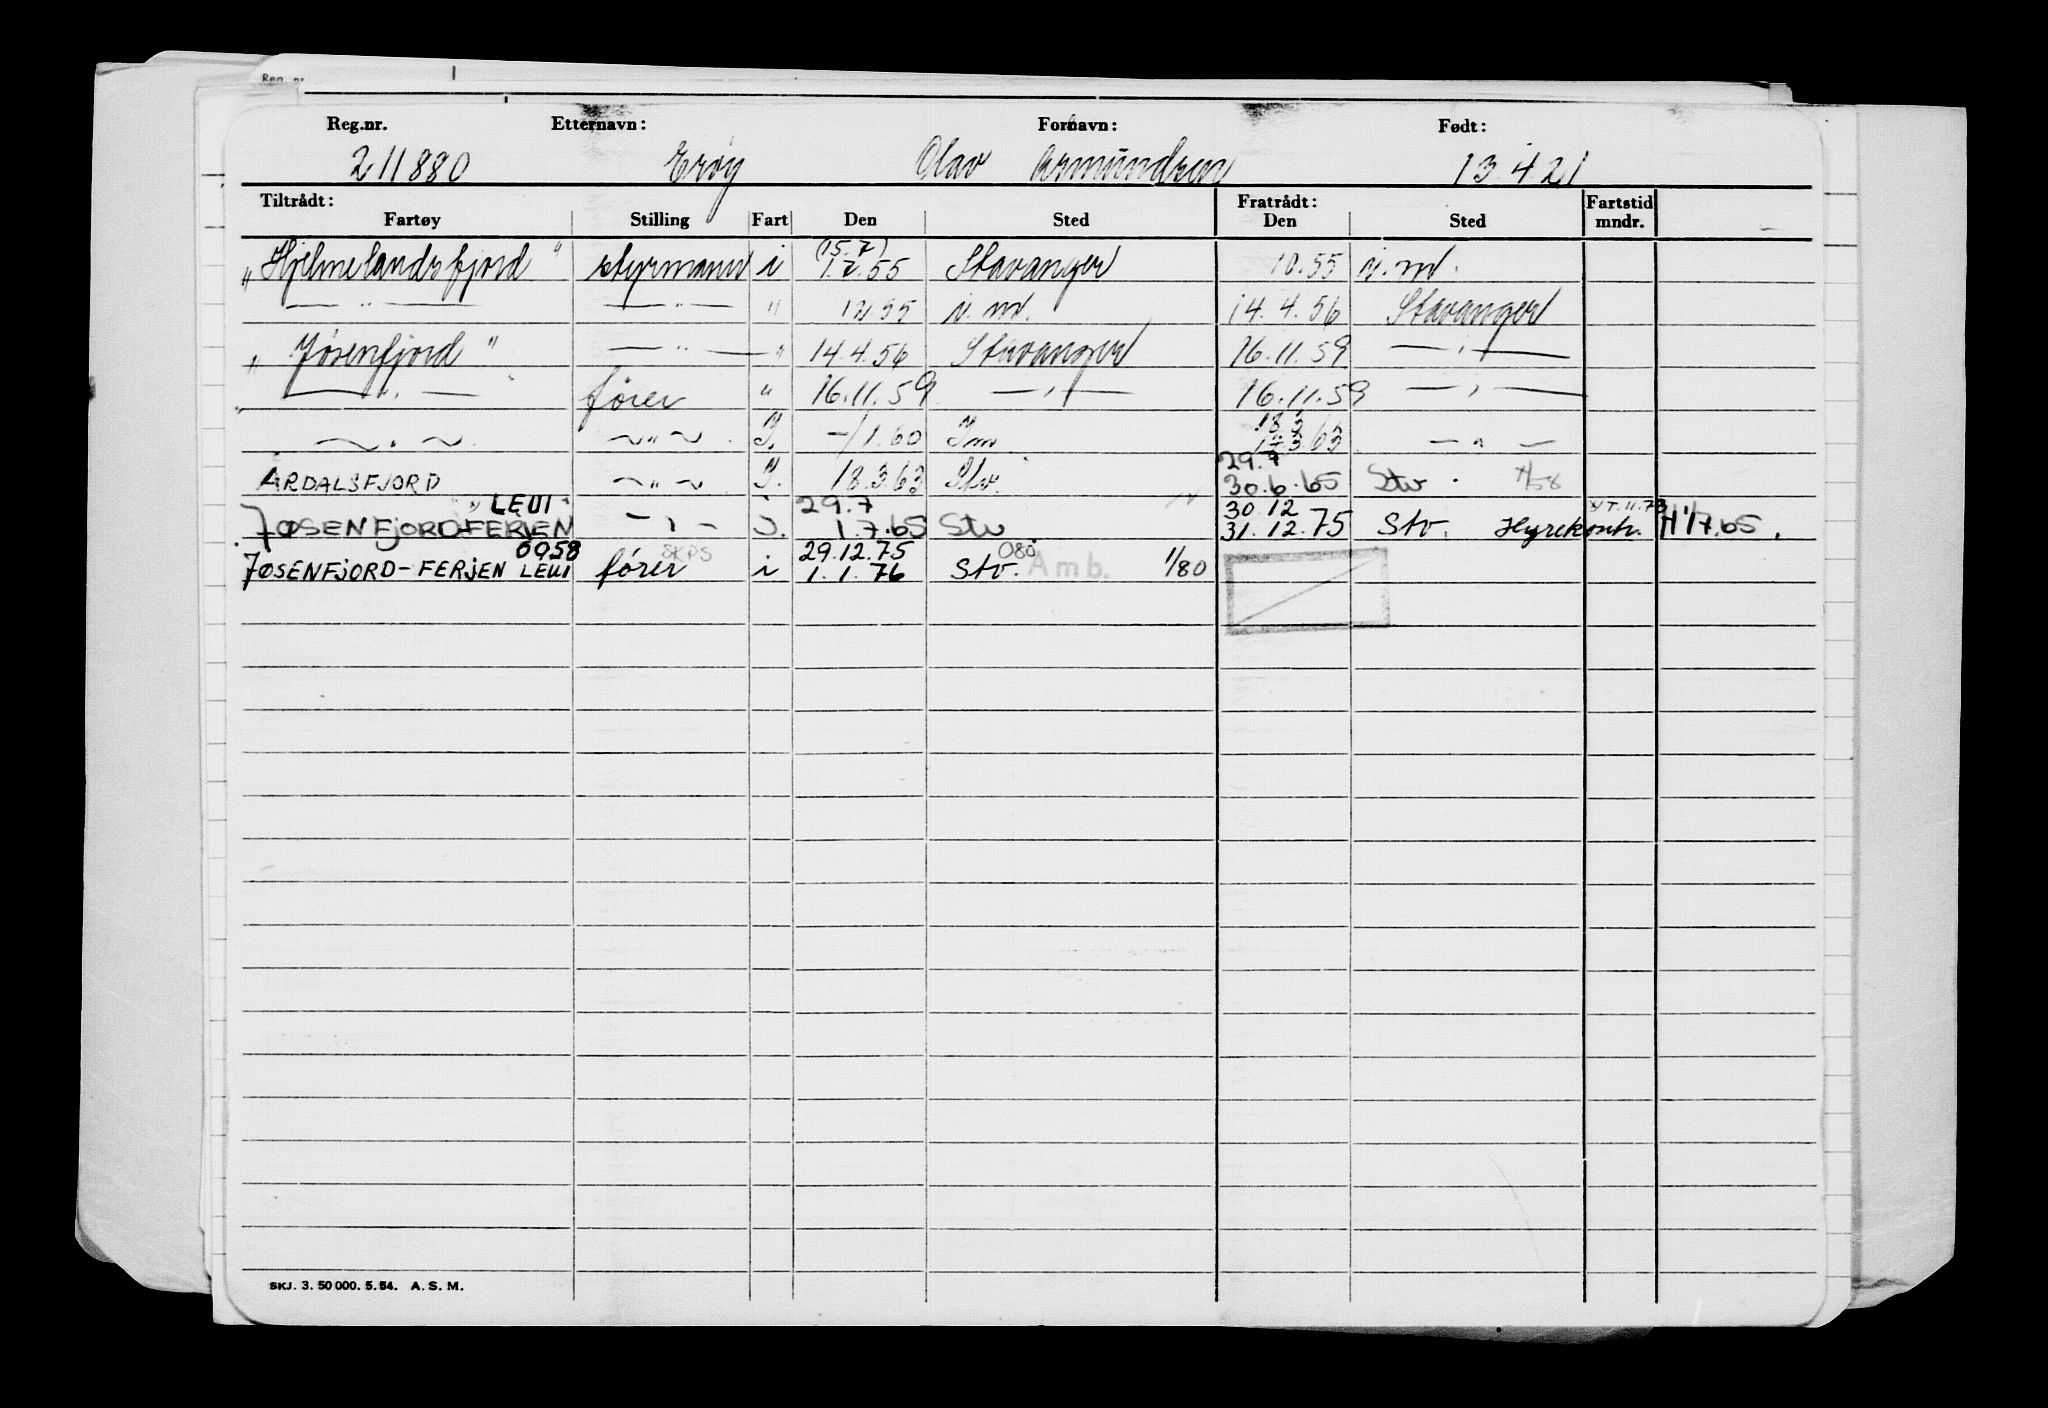 Reg.nr. Etternavn: Fornavn: Født:
211880 Erøy Olav Asmundsen 13.4.21
Tiltrådt: Fratrådt: Fartstid
Fartøy Stilling Fart Den Sted Den Sted mndr.
(15.7)
"Hjelmelandsfjord" styrmann i 1.7.55 Stavanger 10.55 n.m.
— " — — " — " 12.55 n.m. 14.4.56 Stavanger
"Jøsenfjord" — " — " 14.4.56 Stavanger 16.11.59 — " —
— " — fører " 16.11.59 — " — 16.11.59 — " —
18.3
— " — — " — I. -/1.60 Im 17.3.63 — " —
29.7
ÅRDALSFJORD — " — I. 18.3.63 Stv. 30.6.65 Stv.
LEUI 29.7 30.12 XT.11.73
JØSENFJORD-FERJEN — " — I. 1.7.65 Stv 31.12.75 Stv. Hyrekontr. H 1/7.65.
0958 SKPS 29.12.75 080
JØSENFJORD-FERJEN LEUI fører i 1.1.76 Stv. Amb. 1/80
SKJ. 3. 50 000. 5. 54. A. S. M.